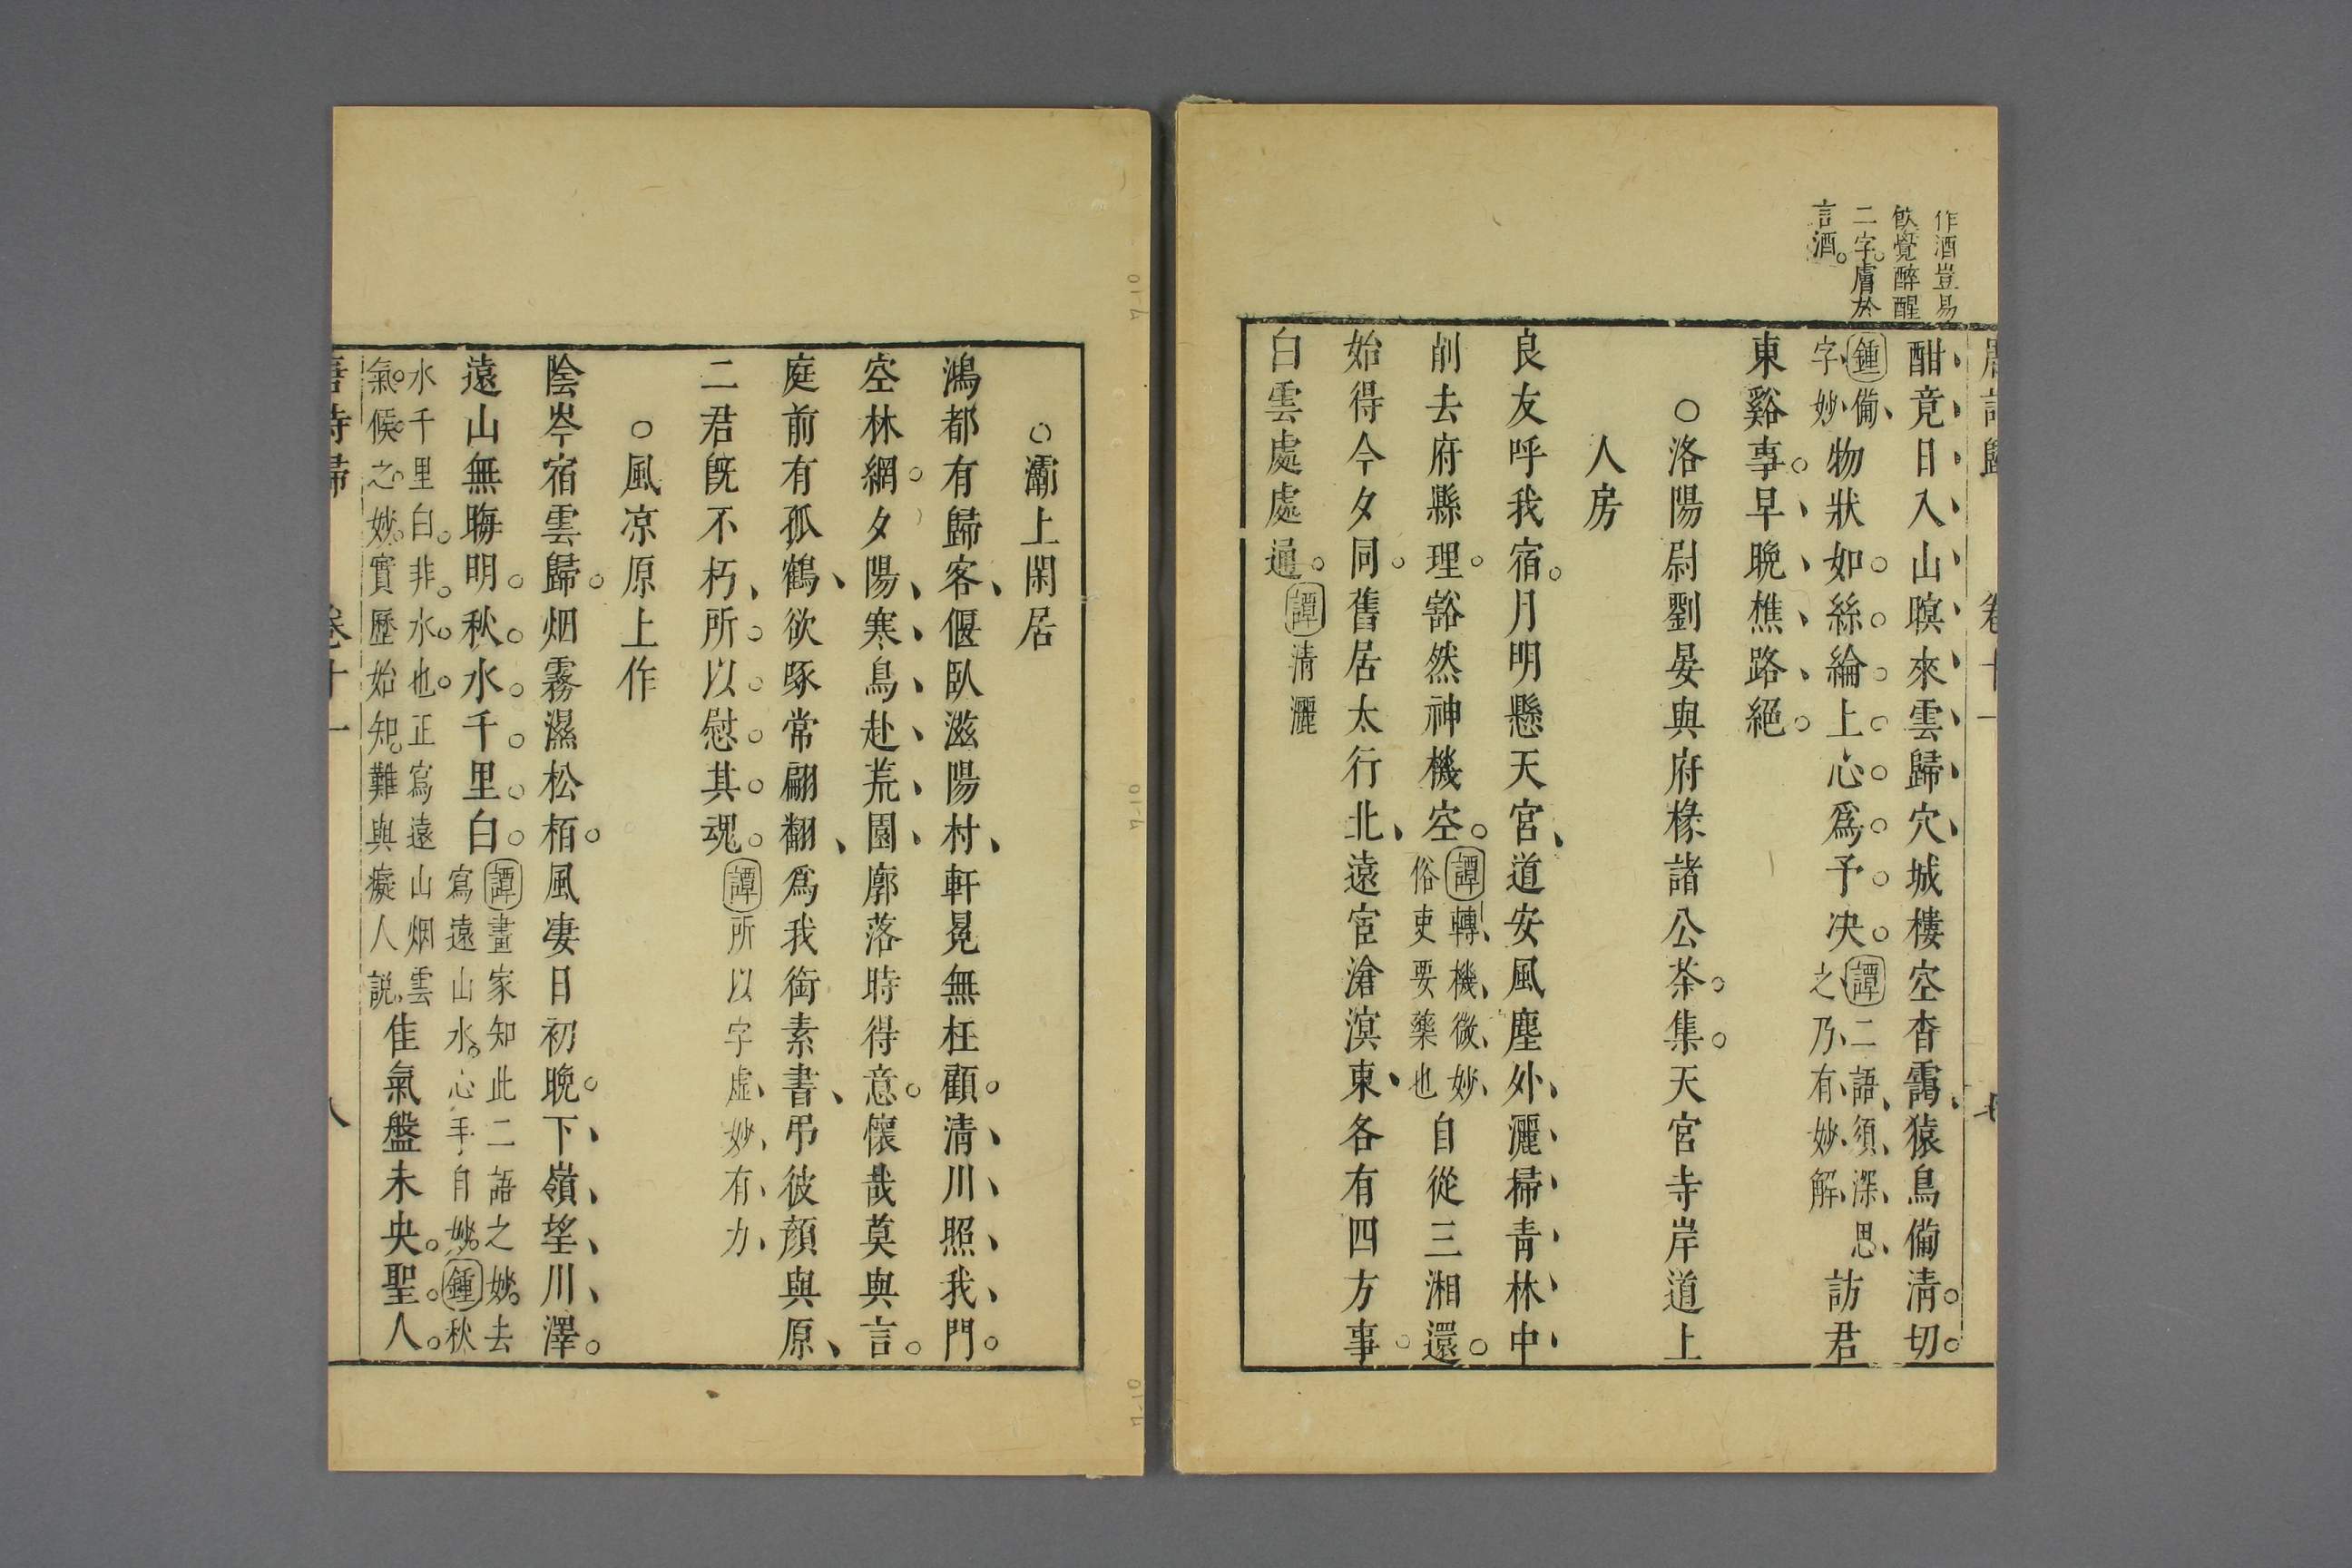 作酒豈易
飲覺醉醒
二字膚於
言酒
唐詩歸 卷十一 七
酣竟日入山暝來雲歸穴城樓空杳靄猿鳥備清切
鍾備字妙物狀如絲綸上心爲予决譚二語須深思之乃有妙解訪君
東谿事早晚樵路絕
○洛陽尉劉晏與府椽諸公茶集天宮寺岸道上
人房
良友呼我宿月明懸天宮道安風塵外灑掃青林中
削去府縣理豁然神機空譚轉機微妙俗吏要藥也自從三湘還
始得今夕同舊居太行北遠宦滄溟東各有四方事
白雲處處通譚清灑
○灞上閑居
鴻都有歸客偃臥滋陽村軒冕無枉顧清川照我門
空林網夕陽寒鳥赴荒園廓落時得意懷哉莫與言
庭前有孤鶴欲啄常翩翻爲我銜素書弔彼顏與原
二君旣不朽所以慰其魂譚所以字虛妙有力
○風凉原上作
陰岑宿雲歸烟霧濕松栢風凄日初晚下嶺望川澤
遠山無晦明秋水千里白譚畫家知此二語之妙去寫遠山水心手自妙鍾秋
水千里白非水也正寫遠山烟雲氣候之妙實歷始知難與癡人説佳氣盤未央聖人
唐詩歸 卷十一 八